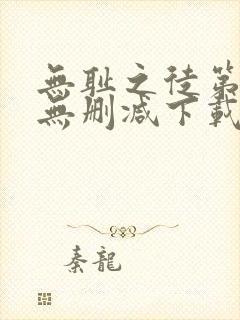 無耻之徒第
無删减下載
秦龍